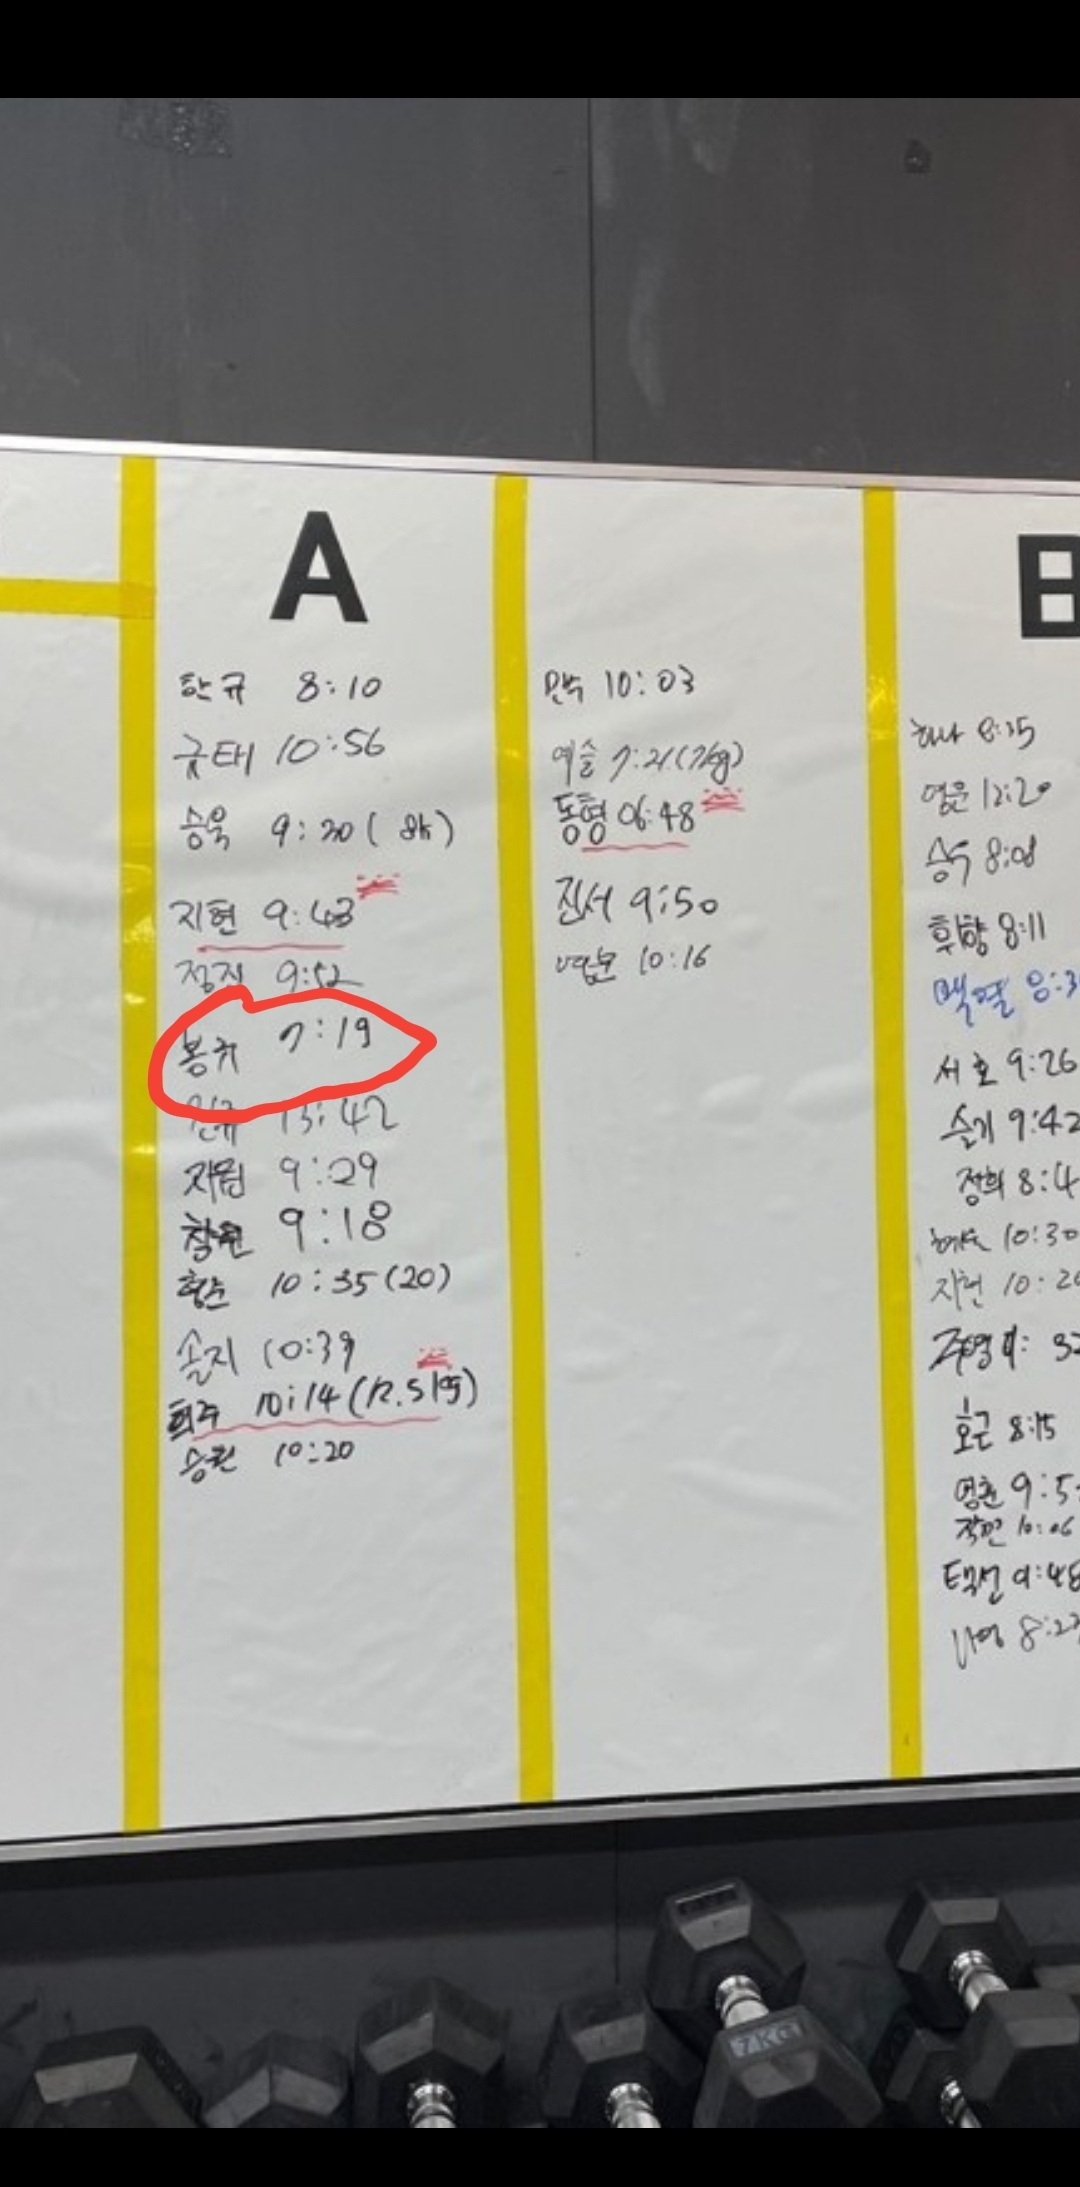 A
한규 8:10
규태 10:56
승욱 9:20 (8k)
지현 9:43
정진 9:52
봉규 7:19
13:42
지원 9:29
창현 9:18
10:35 (20)
솔지 10:39
희주 10:14 (12.5kg)
승현 10:20
민숙 10:03
예슬 7:21 (7kg)
동형 06:48
진서 9:50
10:16
B
하나 8:35
영운 12:20
승수 8:08
휘향 8:11
서호 9:26
슬기 9:42
정희 8:4
10:30
지현 10:20
주영
호근 8:15
영훈 9:5
10:06
택선 9:48
나영 8:23
7KG